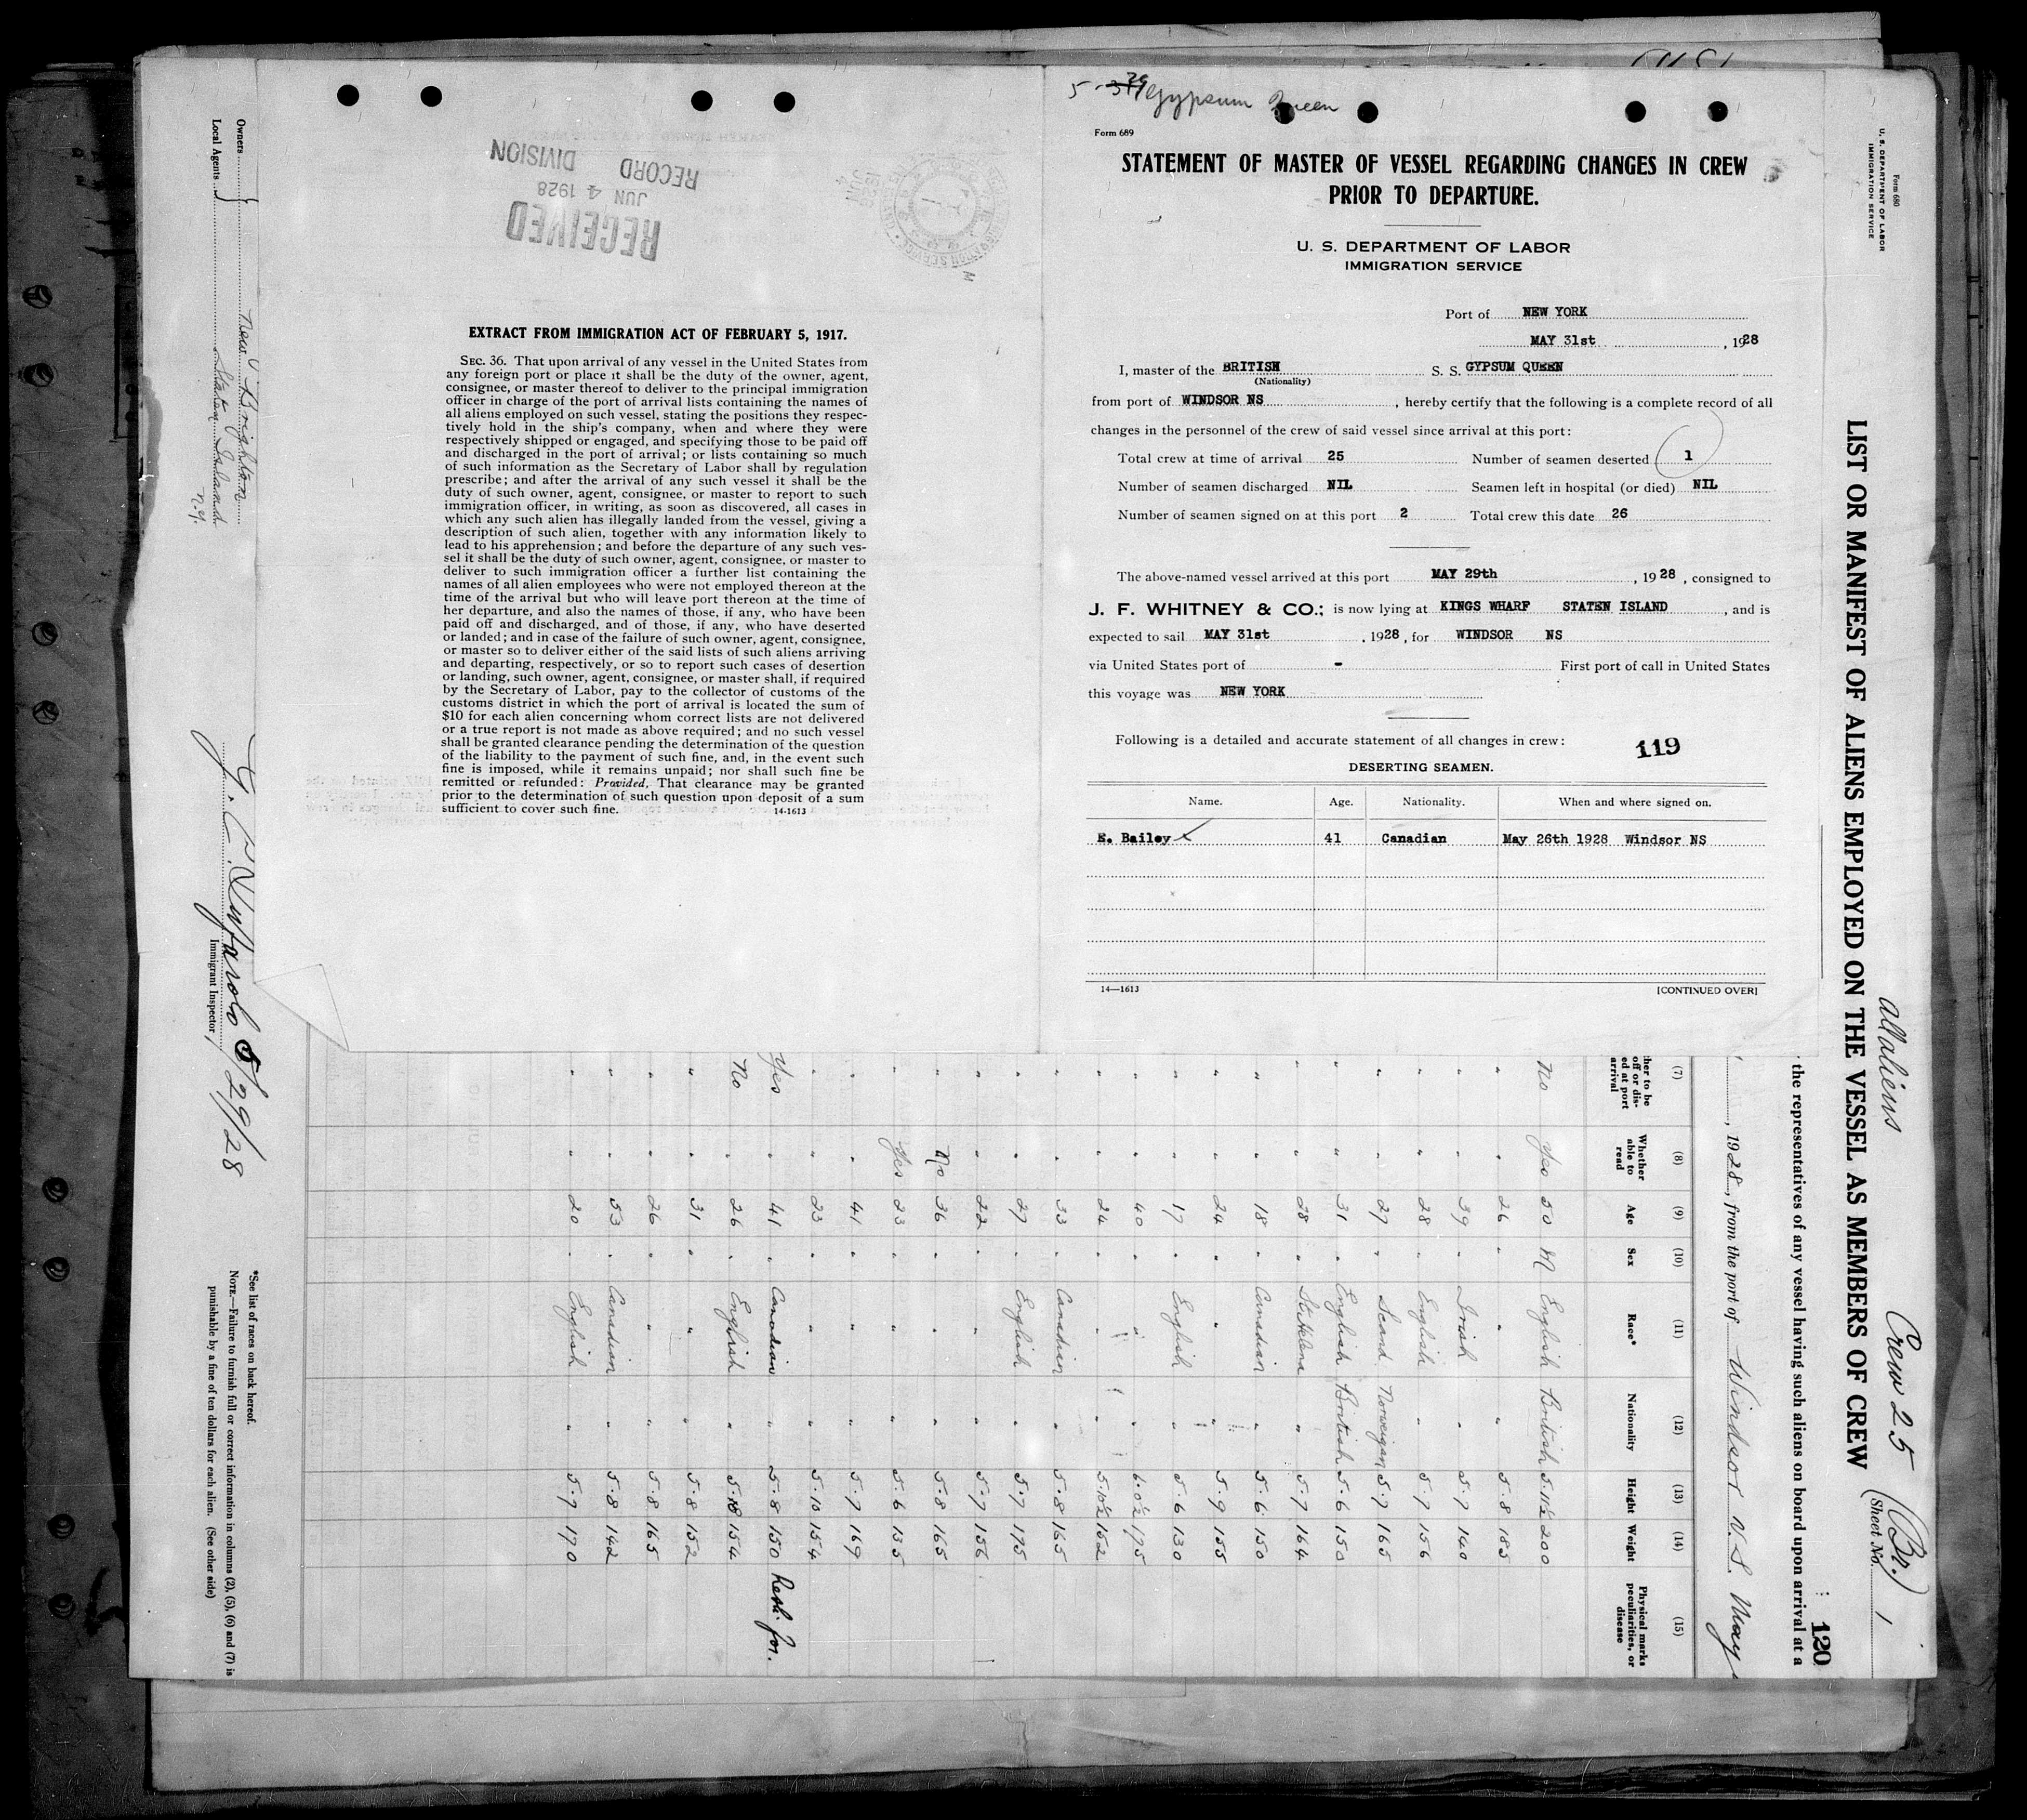 5-29 Gypsum Queen
Form 689
STATEMENT OF MASTER OF VESSEL REGARDING CHANGES IN CREW
PRIOR TO DEPARTURE.
U. S. DEPARTMENT OF LABOR
IMMIGRATION SERVICE
Port of NEW YORK
MAY 31st, 1928
I, master of the BRITISH S. S. GYPSUM QUEEN
(Nationality)
from port of WINDSOR NS, hereby certify that the following is a complete record of all
changes in the personnel of the crew of said vessel since arrival at this port:
Total crew at time of arrival 25 Number of seamen deserted 1
Number of seamen discharged NIL Seamen left in hospital (or died) NIL
Number of seamen signed on at this port 2 Total crew this date 26
The above-named vessel arrived at this port MAY 29th, 1928, consigned to
J. F. WHITNEY & CO.; is now lying at KINGS WHARF STATEN ISLAND, and is
expected to sail MAY 31st, 1928, for WINDSOR NS
via United States port of - First port of call in United States
this voyage was NEW YORK
Following is a detailed and accurate statement of all changes in crew:
119
DESERTING SEAMEN.
Name. Age. Nationality. When and where signed on.
E. Bailey 41 Canadian May 26th 1928 Windsor NS
14—1613
[CONTINUED OVER]
RECEIVED
JUN 4 1928
RECORD DIVISION
EXTRACT FROM IMMIGRATION ACT OF FEBRUARY 5, 1917.
SEC. 36. That upon arrival of any vessel in the United States from
any foreign port or place it shall be the duty of the owner, agent,
consignee, or master thereof to deliver to the principal immigration
officer in charge of the port of arrival lists containing the names of
all aliens employed on such vessel, stating the positions they respec-
tively hold in the ship's company, when and where they were
respectively shipped or engaged, and specifying those to be paid off
and discharged in the port of arrival; or lists containing so much
of such information as the Secretary of Labor shall by regulation
prescribe; and after the arrival of any such vessel it shall be the
duty of such owner, agent, consignee, or master to report to such
immigration officer, in writing, as soon as discovered, all cases in
which any such alien has illegally landed from the vessel, giving a
description of such alien, together with any information likely to
lead to his apprehension; and before the departure of any such ves-
sel it shall be the duty of such owner, agent, consignee, or master to
deliver to such immigration officer a further list containing the
names of all alien employees who were not employed thereon at the
time of the arrival but who will leave port thereon at the time of
her departure, and also the names of those, if any, who have been
paid off and discharged, and of those, if any, who have deserted
or landed; and in case of the failure of such owner, agent, consignee,
or master so to deliver either of the said lists of such aliens arriving
and departing, respectively, or so to report such cases of desertion
or landing, such owner, agent, consignee, or master shall, if required
by the Secretary of Labor, pay to the collector of customs of the
customs district in which the port of arrival is located the sum of
$10 for each alien concerning whom correct lists are not delivered
or a true report is not made as above required; and no such vessel
shall be granted clearance pending the determination of the question
of the liability to the payment of such fine, and, in the event such
fine is imposed, while it remains unpaid; nor shall such fine be
remitted or refunded: Provided, That clearance may be granted
prior to the determination of such question upon deposit of a sum
sufficient to cover such fine.
14-1613
Form 680
U. S. DEPARTMENT OF LABOR
IMMIGRATION SERVICE
all aliens
Crew 25 (Br.)
(Sheet No. 1
LIST OR MANIFEST OF ALIENS EMPLOYED ON THE VESSEL AS MEMBERS OF CREW
120
the representatives of any vessel having such aliens on board upon arrival at a
, 1928, from the port of Windsor N.S. May
(7) (8) (9) (10) (11) (12) (13) (14) (15)
her to be off or dis- ed at port arrival Whether able to read Age Sex Race* Nationality Height Weight Physical marks peculiarities, or disease
No Yes 50 M English British 5.11½ 200
" " 26 " " " 5.8 185
" " 39 " Irish " 5.7 140
" " 28 " English " 5.7 156
" " 27 " Scand Norweigan 5.7 165
" " 31 " English British 5.6 150
" " 28 " St Helena " 5.7 164
" " 18 " Canadian " 5.6 150
" " 24 " " " 5.9 155
" " 17 " English " 5.6 130
" " 40 " " " 6.0½ 175
" " 24 " " " 5.10½ 152
" " 33 " Canadian " 5.8 165
" " 27 " English " 5.7 175
" " 22 " " " 5.7 156
" No 36 " " " 5.8 165
" Yes 23 " " " 5.6 135
" " 41 " " " 5.7 169
" " 23 " " " 5.10 154
Yes " 41 " Canadian " 5.8 150 Resh. for.
No " 26 " English " 5.8 154
" " 31 " " " 5.8 152
" " 26 " " " 5.8 165
" " 53 " Canadian " 5.8 142
" " 20 " English " 5.7 170
Owners
Local Agents
New Brighton
Staten Island
N.Y.
5/29/28
Immigrant Inspector.
*See list of races on back hereof.
NOTE.—Failure to furnish full or correct information in columns (2), (5), (6) and (7) is
punishable by a fine of ten dollars for each alien. (See other side)